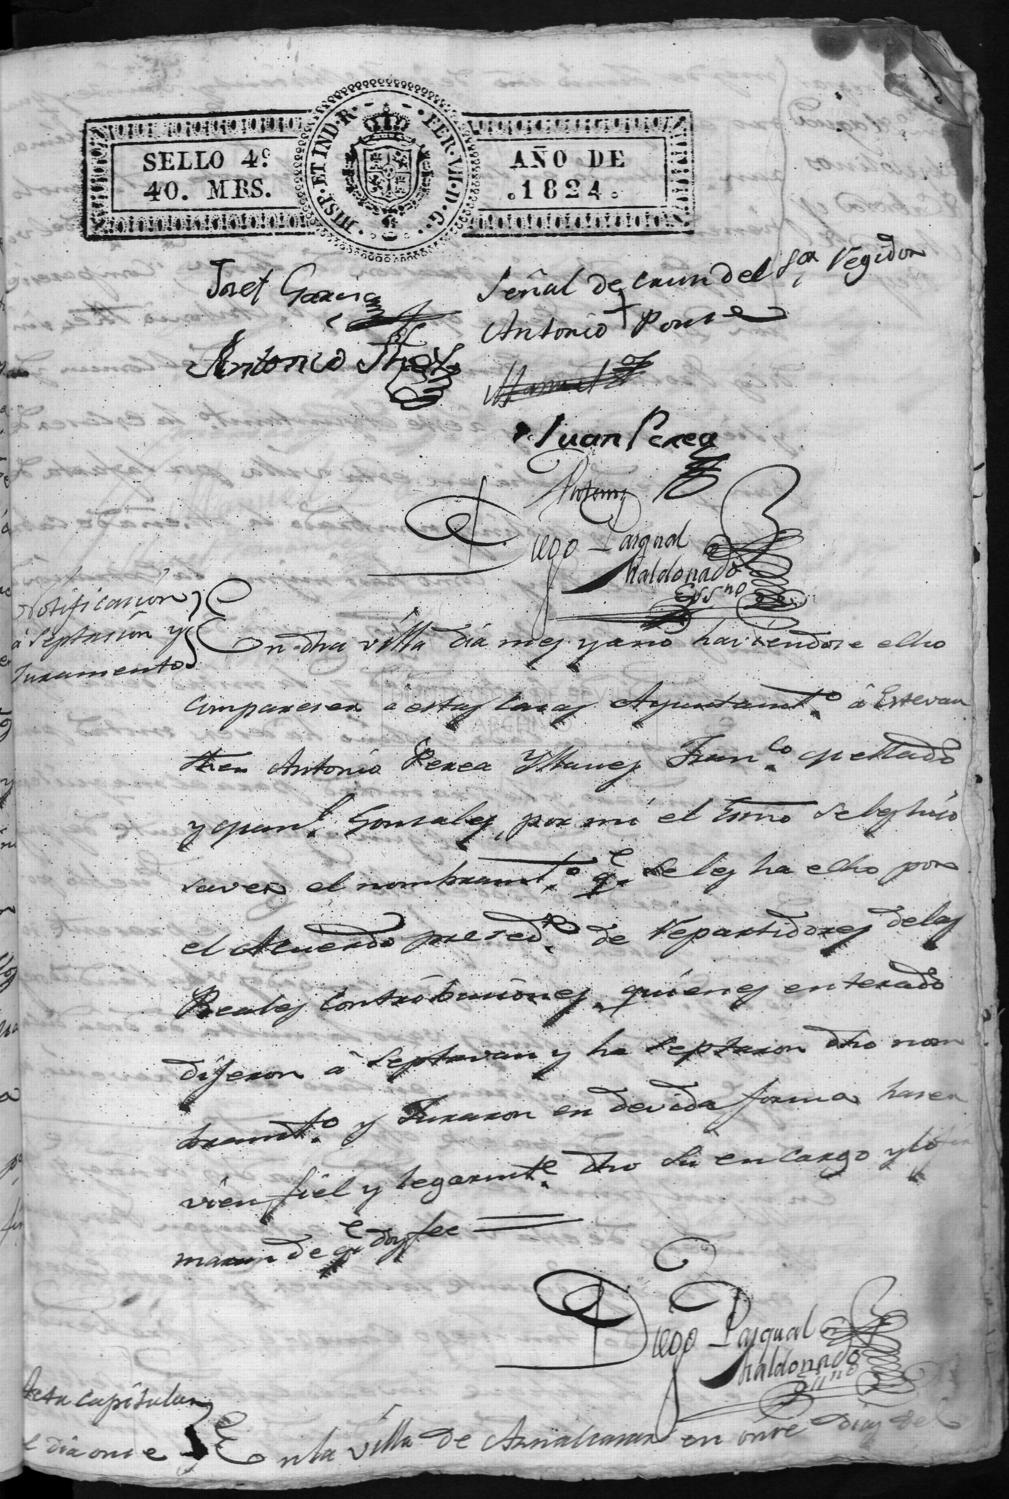 SELLO 4º
40. MRS.
HISP. ET IND. R. FER. VII. D. G.
AÑO DE
1824
Josef Garcia
Señal de cruz del Sor Regidor
Antonio + Ponse
Antonio
Manuel
Juan Perea
Antemi
Diego Pasqual
Maldonado
Essno
Notificasion
aseptasion y
Juramento
En dha villa dia mes y año haviendose echo
Compareser a estas Casas Ayuntamto a Estevan
Antonio Perea Ybanes Franco
y Gonsales, por mi el Essno se les hiso
saver el nombramto qe se les ha echo por
el Acuerdo presedte de Repartidores de las
Reales Contribusiones, quienes enterado
dijeron aseptavan y ha septaron dho nom
bramto y Juraron en devida forma haser
vien fiel y legarmte dho su encargo y lo fir
maron de qe doy fee
Diego Pasqual
Maldonado
Essno
Acta capitular
l dia onse
En la villa de Asnalcasar en onse dias del